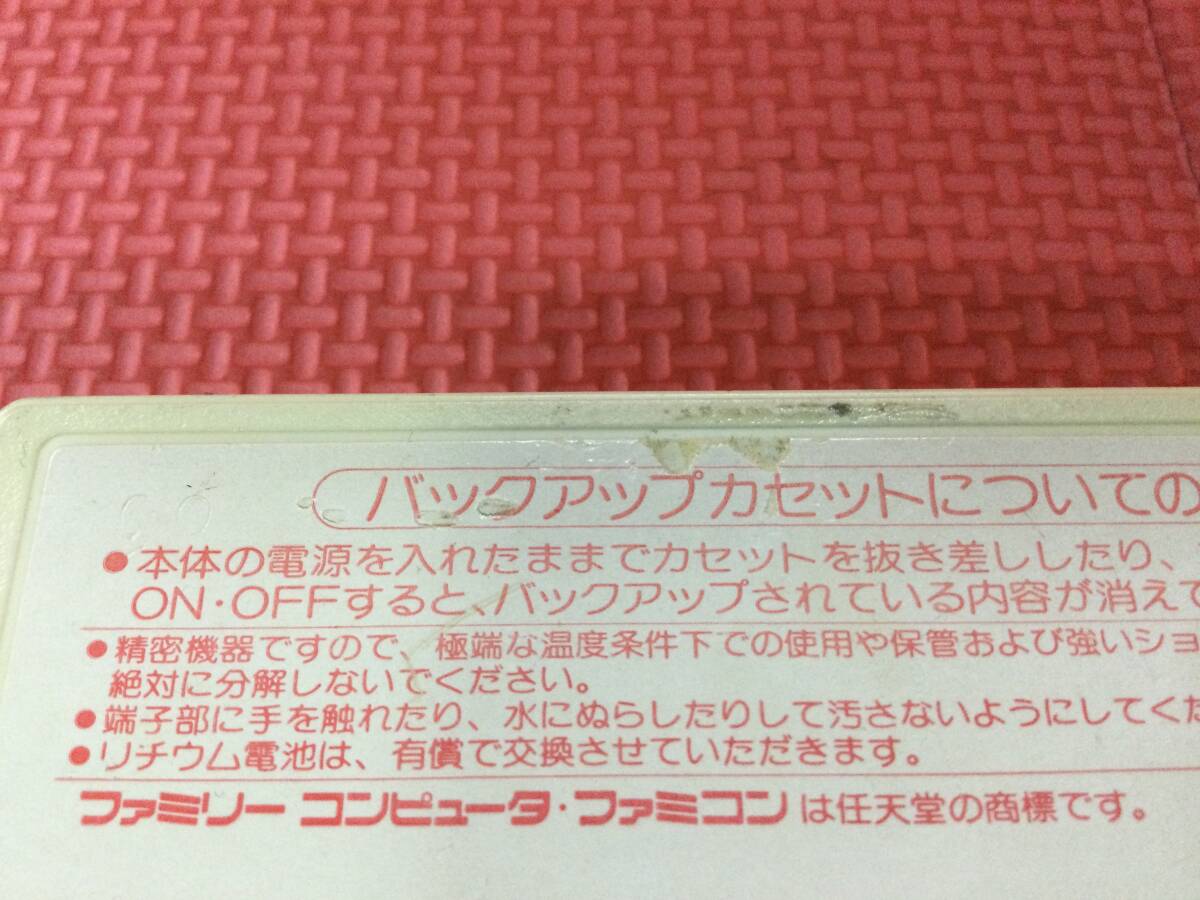 バックアップカセットについての
●本体の電源を入れたままでカセットを抜き差ししたり、
ON・OFFすると、バックアップされている内容が消えて
●精密機器ですので、極端な温度条件下での使用や保管および強いショ
絶対に分解しないでください。
●端子部に手を触れたり、水にぬらしたりして汚さないようにしてくだ
●リチウム電池は、有償で交換させていただきます。
ファミリーコンピュータ・ファミコンは任天堂の商標です。